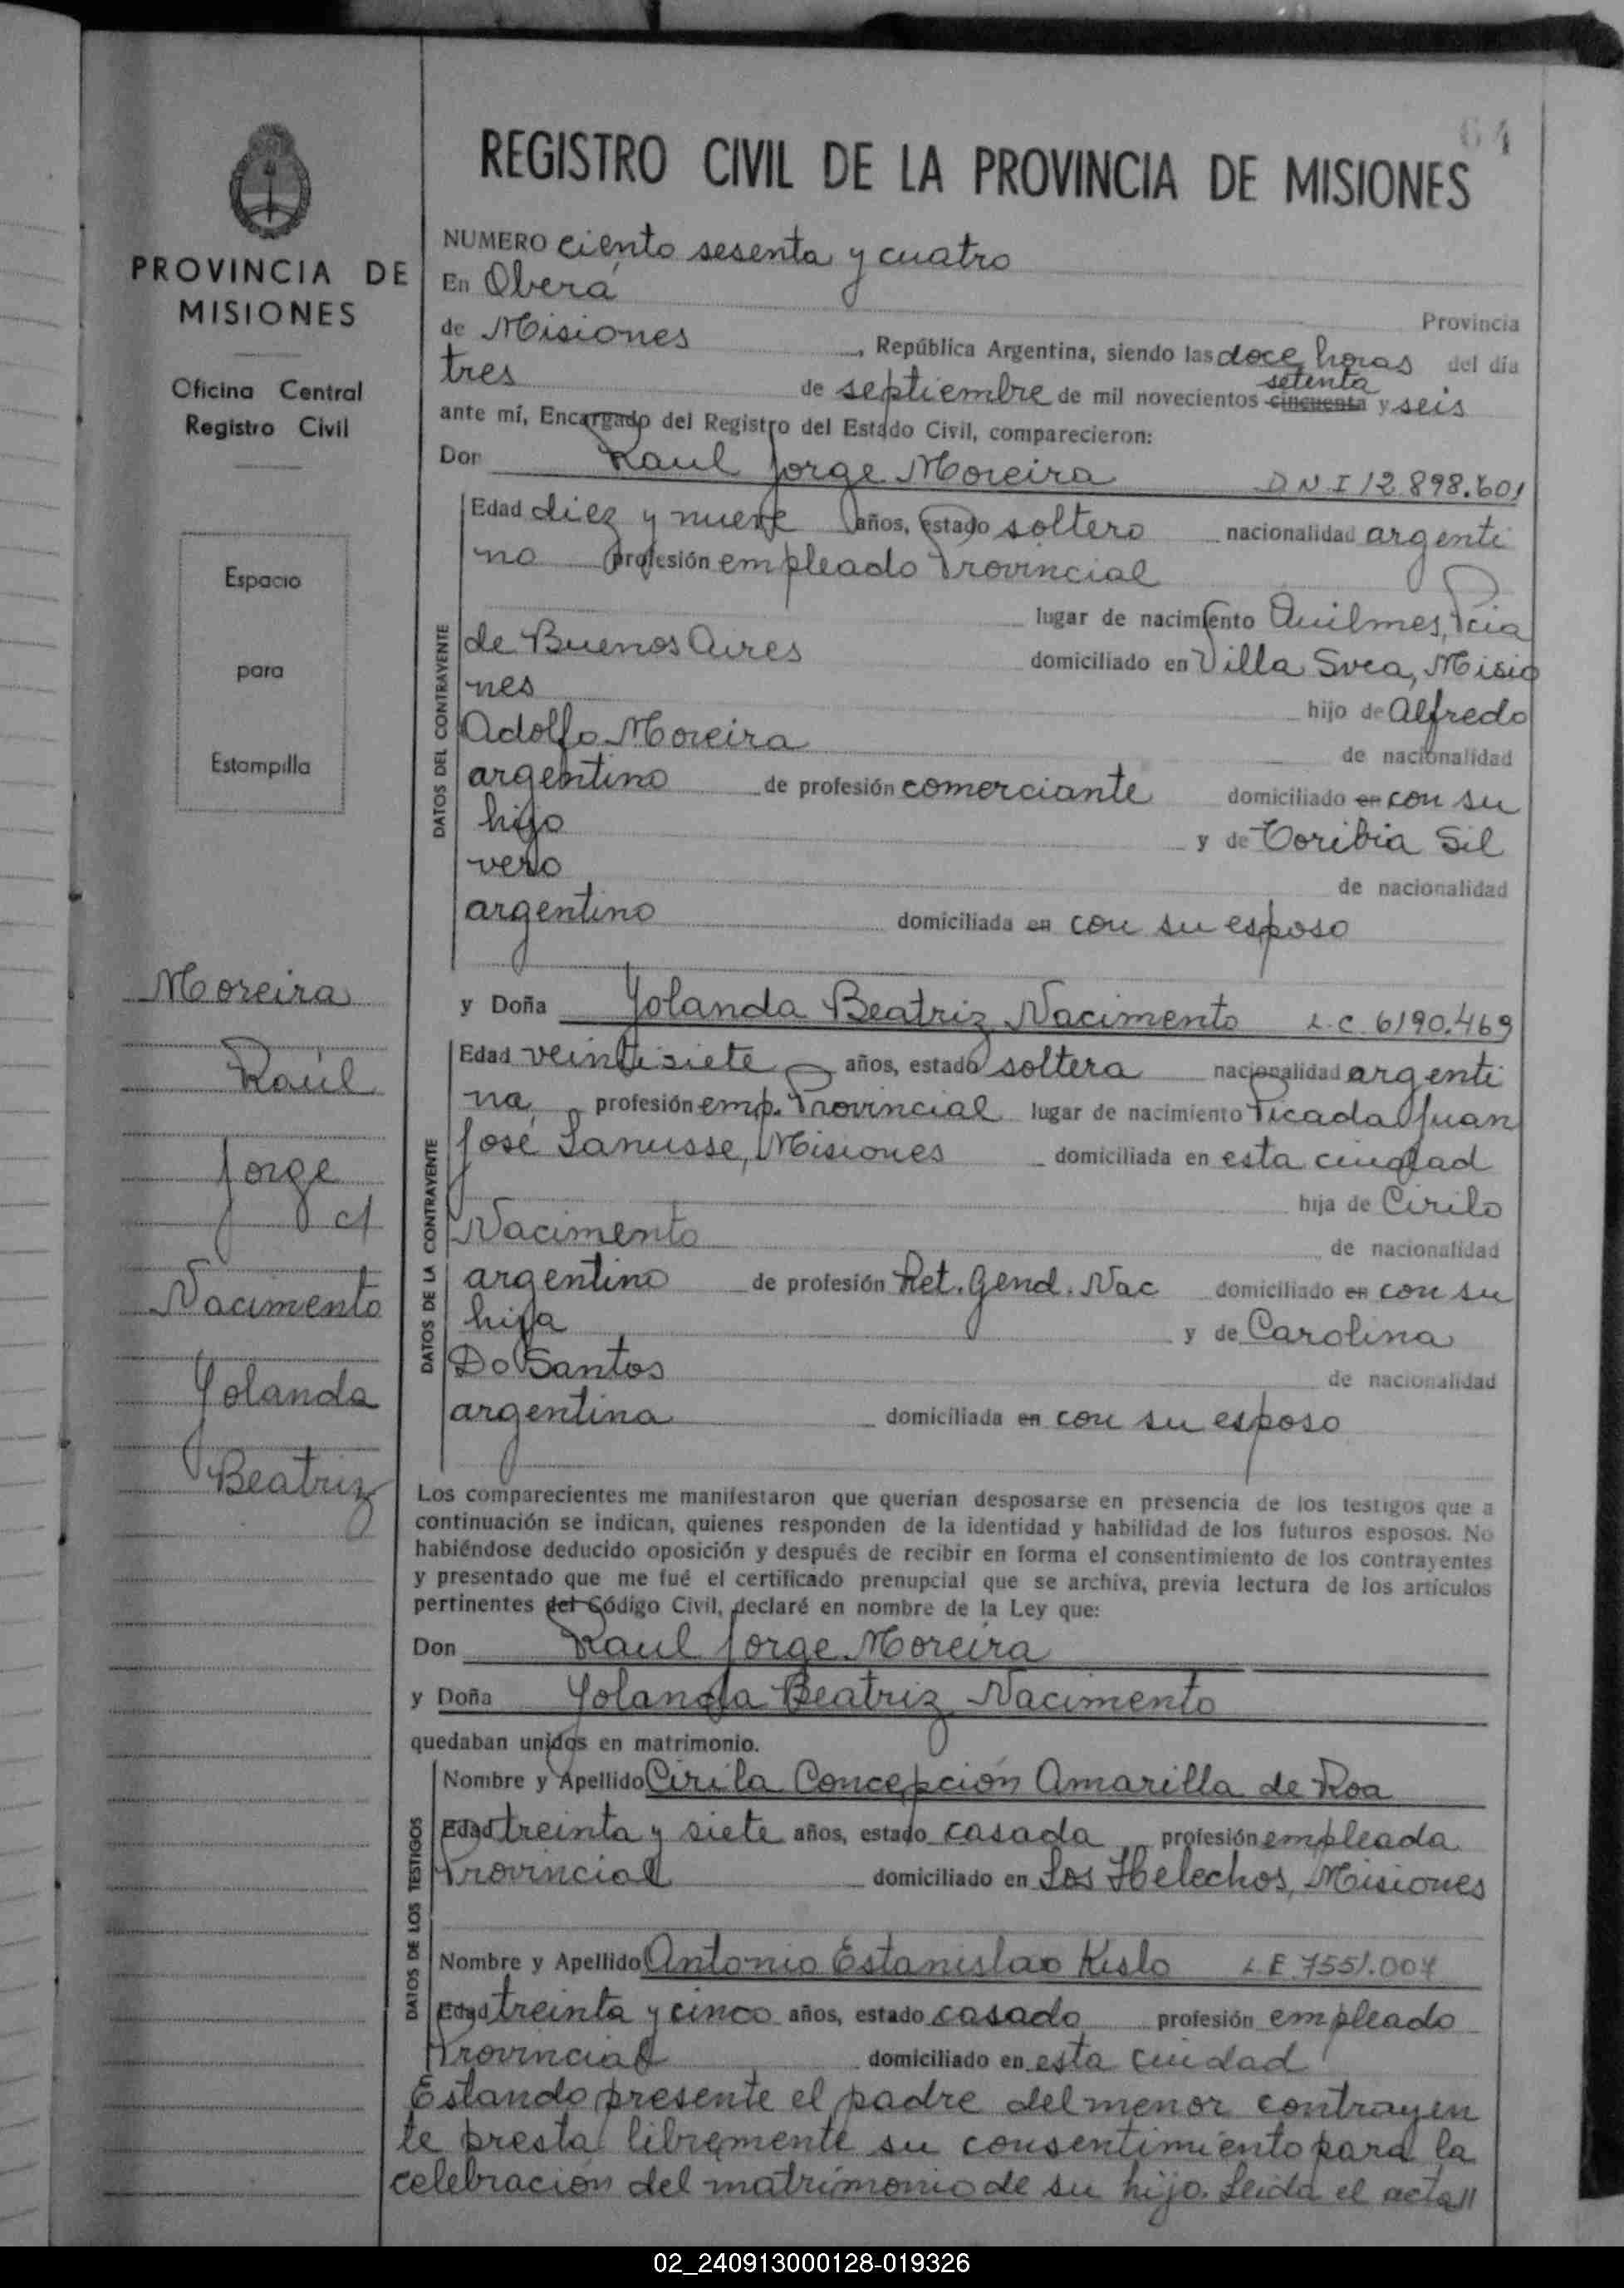 64
REGISTRO CIVIL DE LA PROVINCIA DE MISIONES
PROVINCIA DE
MISIONES
Oficina Central
Registro Civil
Espacio
para
Estampilla
Moreira
Raúl
Jorge
c/
Nacimento
Yolanda
Beatriz
NUMERO ciento sesenta y cuatro
En Oberá
Provincia
de Misiones, República Argentina, siendo las doce horas del día
tres de septiembre de mil novecientos cincuenta setenta y seis
ante mí, Encargado del Registro del Estado Civil, comparecieron:
Don Raul Jorge Moreira D.N.I 12.898.601
DATOS DEL CONTRAYENTE
Edad diez y nueve años, estado soltero nacionalidad argenti
no profesión empleado Provincial
lugar de nacimiento Quilmes, Pcia
de Buenos Aires domiciliado en Villa Svea, Misio
nes hijo de Alfredo
Adolfo Moreira de nacionalidad
argentino de profesión comerciante domiciliado en con su
hijo y de Toribia Sil
vero de nacionalidad
argentino domiciliada en con su esposo
y Doña Yolanda Beatriz Nacimento L.C. 6190.469
DATOS DE LA CONTRAYENTE
Edad veintisiete años, estado soltera nacionalidad argenti
na profesión emp. Provincial lugar de nacimiento Picada Juan
José Lanusse, Misiones domiciliada en esta ciudad
hija de Cirilo
Nacimento de nacionalidad
argentino de profesión Ret. Gend. Nac domiciliado en con su
hija y de Carolina
Do Santos de nacionalidad
argentina domiciliada en con su esposo
Los comparecientes me manifestaron que querían desposarse en presencia de los testigos que a
continuación se indican, quienes responden de la identidad y habilidad de los futuros esposos. No
habiéndose deducido oposición y después de recibir en forma el consentimiento de los contrayentes
y presentado que me fué el certificado prenupcial que se archiva, previa lectura de los artículos
pertinentes del Código Civil, declaré en nombre de la Ley que:
Don Raul Jorge Moreira
y Doña Yolanda Beatriz Nacimento
quedaban unidos en matrimonio.
DATOS DE LOS TESTIGOS
Nombre y Apellido Cirila Concepción Amarilla de Roa
Edad treinta y siete años, estado casada profesión empleada
Provincial domiciliado en Los Helechos, Misiones
Nombre y Apellido Antonio Estanislao Kislo L.E. 7551.007
Edad treinta y cinco años, estado casado profesión empleado
Provincial domiciliado en esta ciudad
Estando presente el padre del menor contrayen
te presta libremente su consentimiento para la
celebración del matrimonio de su hijo. Leida el acta//
02_240913000128-019326